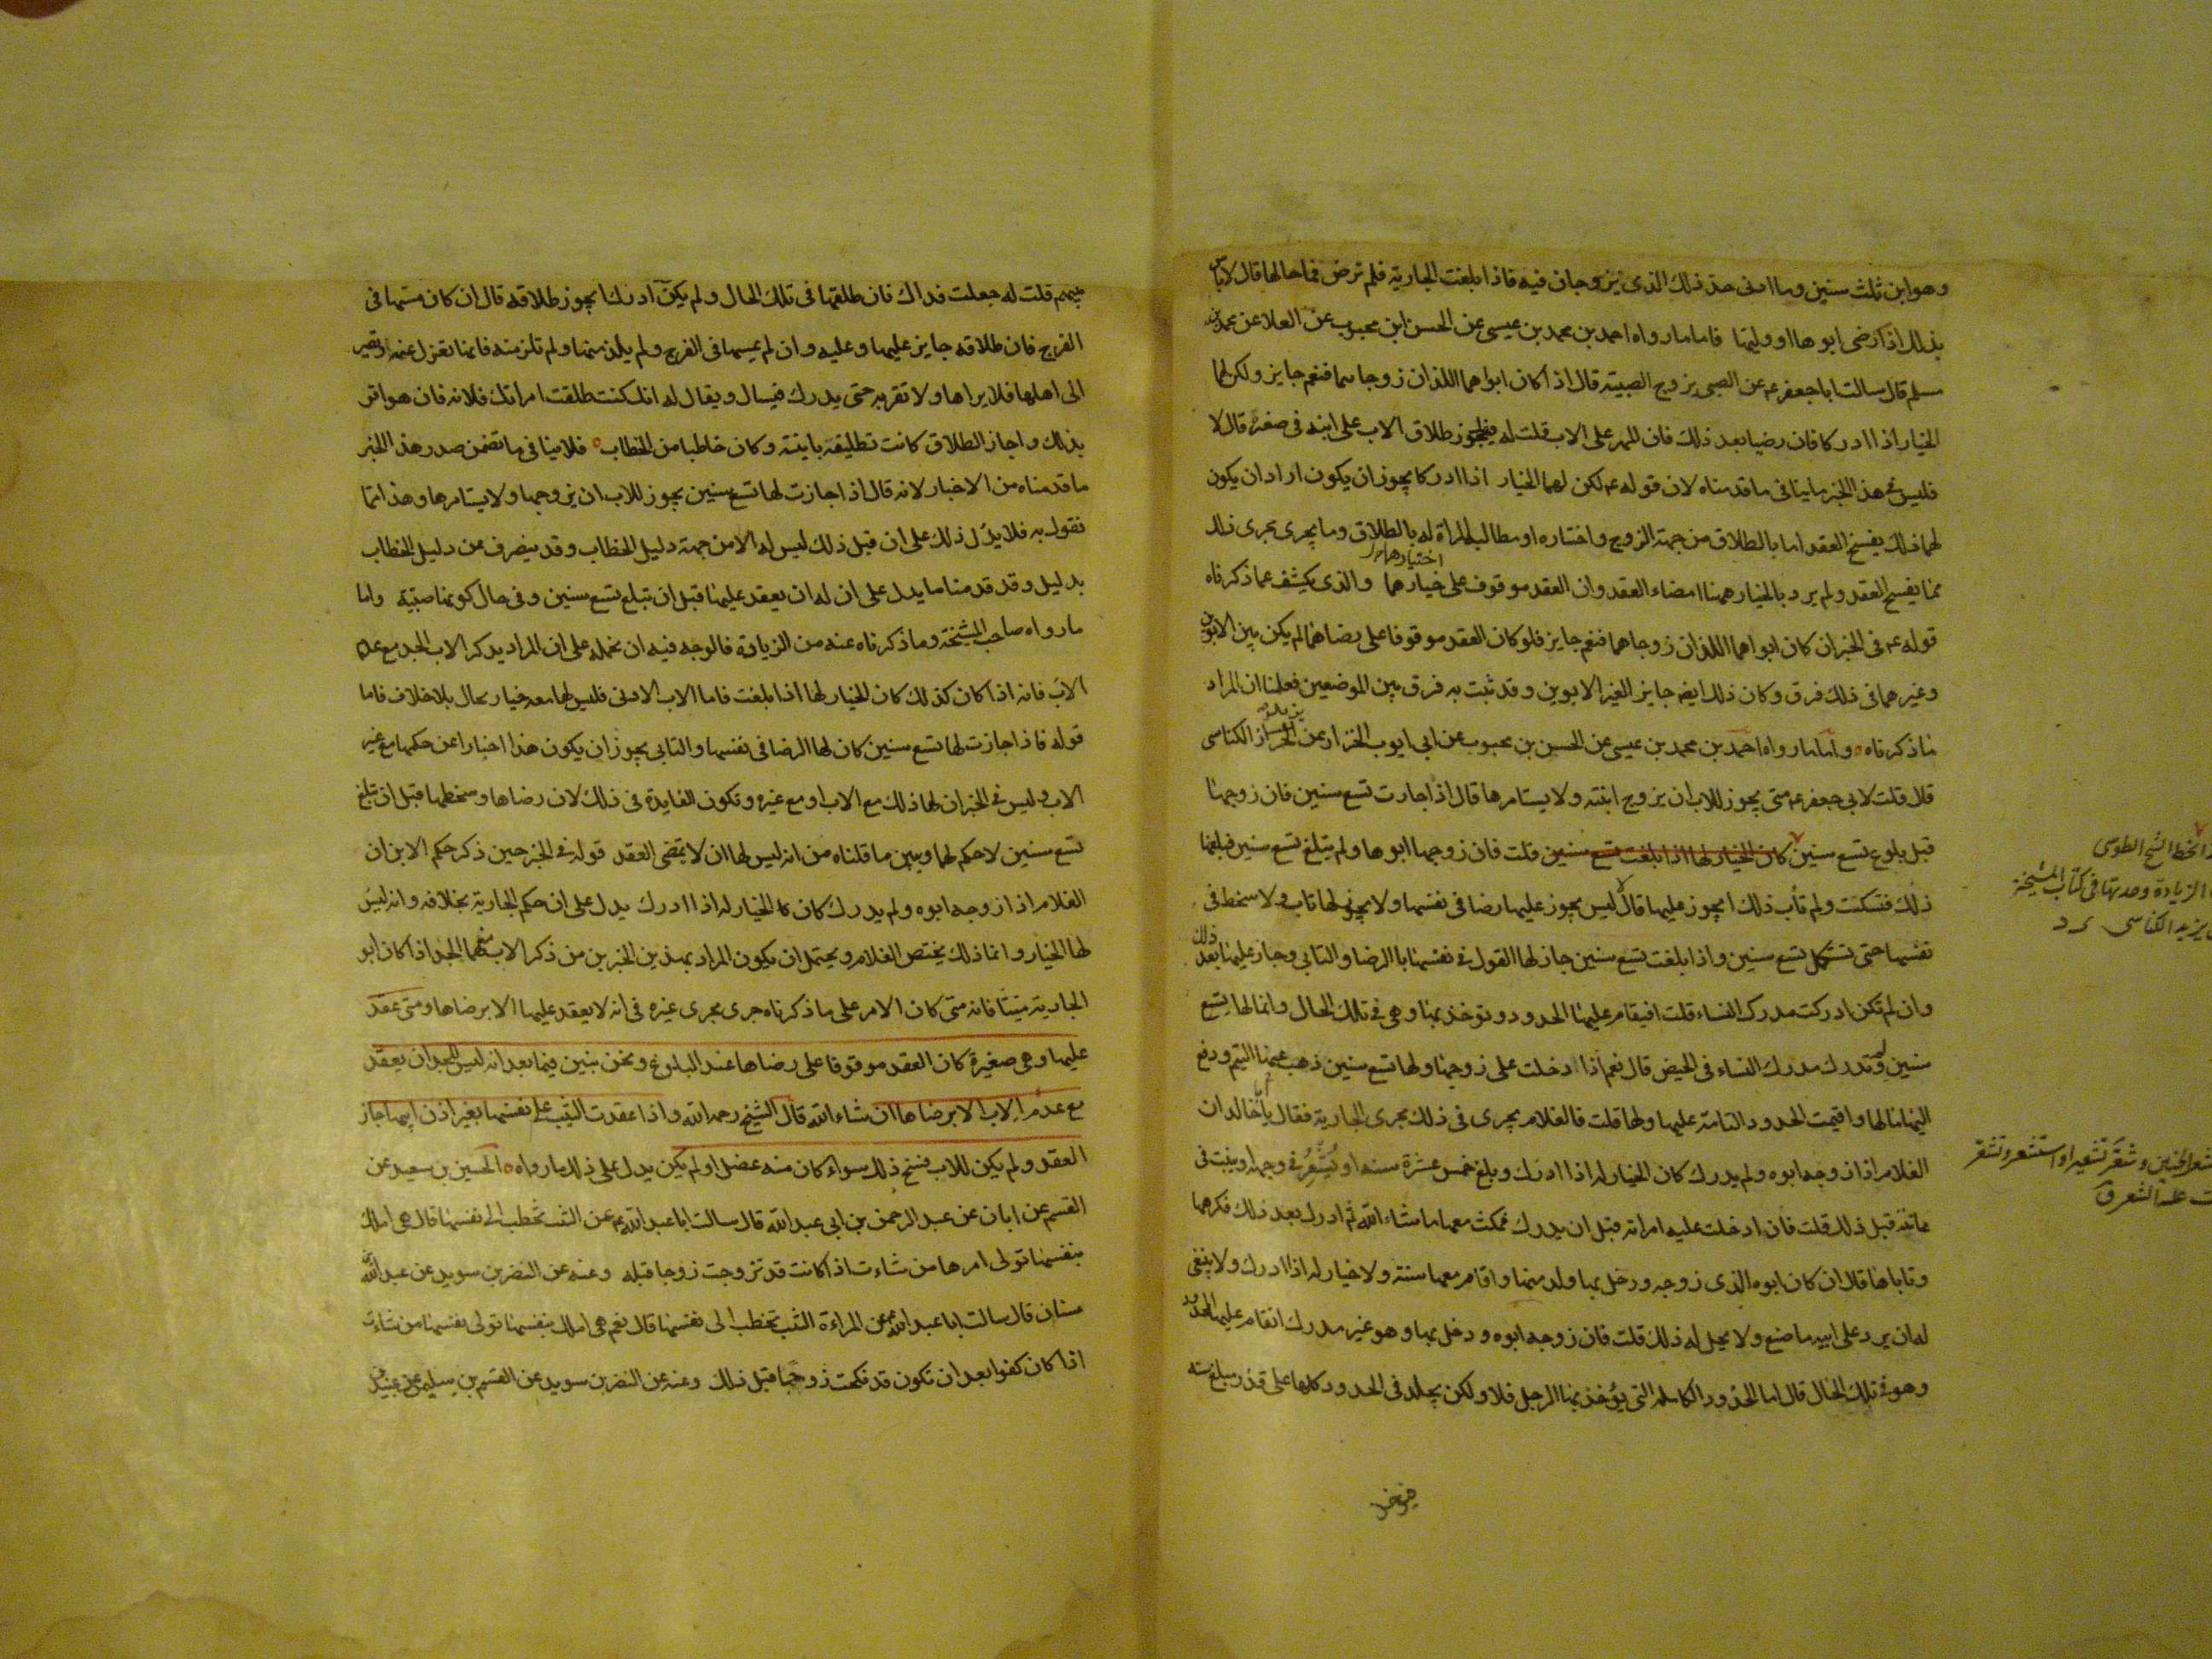 وهو ابن ثلث سنين وما ادنى حد ذلك الذى يزوجان فيه فاذا بلغت الجارية فلم ترض فما حالها قال لا باس
بذلك اذا رضى ابوها او وليها فاما ما رواه احمد بن محمد بن عيسى عن الحسن ابن محبوب عن العلا عن محمد بن
مسلم قال سالت ابا جعفر عه عن الصبى يزوج الصبية قال اذا كان ابواهما اللذان زوجاهما فنعم جايز ولكن لهما
الخيار اذا ادركا فان رضيا بعد ذلك فان المهر على الاب قلت له فيجوز طلاق الاب على ابنه فى صغره قال لا
فليس فى هذا الخبر ما ينافى ما قدمناه لان قوله عه لكن لهما الخيار اذا ادركا يجوز ان يكون اراد ان يكون
لهما ذلك بفسخ العقد اما بالطلاق من جهة الزوج واختياره او مطالبة المراة له بالطلاق وما يجرى مجرى ذلك
اختيارهما
مما يفسخ العقد ولم يرد بالخيار ههنا امضاء العقد وان العقد موقوف على خيارهما والذى يكشف عما ذكرناه
قوله عه فى الخبر ان كان ابواهما اللذان زوجاهما فنعم جايز فلو كان العقد موقوفا على رضاهما لم يكن بين الابوين
وغيرهما فى ذلك فرق وكان ذلك ايضا جايز الغير الابوين وقد ثبت به فرق بين الموضعين فعلمنا ان المراد
ما ذكرناه واما ما رواه احمد بن محمد بن عيسى عن الحسن بن محبوب عن ابى ايوب الخزاز عن يزيد الكناسى
قال قلت لابى جعفر عه متى يجوز للاب ان يزوج ابنته ولا يستامرها قال اذا جازت تسع سنين فان زوجها
قبل بلوغ تسع سنين كان الخيار لها اذا بلغت تسع سنين قلت فان زوجها ابوها ولم يبلغ تسع سنين فبلغها
ذلك فسكتت ولم تاب ذلك ايجوز عليها قال لا ليس يجوز عليها رضا فى نفسها ولا يجوز لها تاب ولا سخط فى
نفسها حتى تستكمل تسع سنين واذا بلغت تسع سنين جاز لها القول فى نفسها بالرضا والتابى وجاز عليها بعد ذلك
وان لم تكن ادركت مدرك النساء قلت افيقام عليها الحدود وتوخذ بها وهى فى تلك الحال وانما لها تسع
سنين ولم تدرك مدرك النساء فى الحيض قال نعم اذا دخلت على زوجها ولها تسع سنين ذهب عنها اليتم ودفع
اليها مالها واقيمت الحدود التامة عليها ولها قلت فالغلام يجرى فى ذلك مجرى الجارية فقال يا ابا خالد ان
الغلام اذا زوجه ابوه ولم يدرك كان الخيار له اذا ادرك وبلغ خمس عشرة سنة او يشعر فى وجهه او ينبت فى
عانته قبل ذلك قلت فان ادخلت عليه امراته قبل ان يدرك فمكث معها ما شاء الله ثم ادرك بعد ذلك فكرهها
وتاباها قال ان كان ابوه الذى زوجه ودخل بها ولد منها واقام معها سنة ولا خيار له اذا ادرك ولا ينبغى
له ان يرد على ابيه ما صنع ولا يحل له ذلك قلت فان زوجه ابوه ودخل بها وهو غير مدرك اتقام عليه الحدود
وهو فى تلك الحال قال اما الحدود الكاملة التى يؤخذ بها الرجل فلا ولكن يجلد فى الحدود كلها على قدر مبلغ سنه
بخط الشيخ الطوسى
الزيادة وجدتها فى كتاب المشيخة
يزيد الكناسى
شعر الجنين وشعر تشعيرا واستشعر وتشعر
عليه الشعر ق
قلت له جعلت فداك فان طلقها فى تلك الحال ولم يكن ادرك ايجوز طلاقه قال ان كان مسها فى
الفرج فان طلاقه جايز عليها وعليه وان لم يمسها فى الفرج ولم يلذ منها ولم تلذ منه فانها تعزل عنه وتصير
الى اهلها فلا يراها ولا تقربه حتى يدرك فيسال ويقال له انك كنت طلقت امراتك فلانه فان هو اقر
بذلك واجاز الطلاق كانت تطليقة باينة وكان خاطبا من الخطاب فلا ينافى ما تضمن صدر هذا الخبر
ما قدمناه من الاخبار لانه قال اذا جازت لها تسع سنين يجوز للاب ان يزوجها ولا يستامرها وهذا انما
نقول به فلا يدل ذلك على ان قبل ذلك ليس له الا من جهة دليل الخطاب وقد ينصرف من دليل الخطاب
بدليل وقد قدمنا ما يدل على ان له ان يعقد عليها قبل ان تبلغ تسع سنين وفى حال كونها صبية واما
ما رواه صاحب المشيخة وما ذكرناه عنه من الزيادة فالوجه فيه ان نحمله على ان المراد بذكر الاب الجد مع عدم
الاب فانه اذا كان كذلك كان الخيار لها اذا بلغت فاما الاب الادنى فليس لها معه خيار بحال بلا خلاف فاما
قوله فاذا جازت لها تسع سنين كان لها الرضا فى نفسها والتابى يجوز ان يكون هذا اخبارا عن حكمها مع غير
الاب وليس فى الخبر ان لها ذلك مع الاب او مع غيره وتكون الفايدة فى ذلك لان رضاها وسخطها قبل ان تبلغ
تسع سنين لا حكم لها ويبين ما قلناه من انه ليس لها ان لا تمضى العقد قوله فى الخبر حين ذكر حكم الابن ان
الغلام اذا زوجه ابوه ولم يدرك كان الخيار له اذا ادرك يدل على ان حكم الجارية بخلافه وانه ليس
لها الخيار وانما ذلك يختص الغلام ويحتمل ان يكون المراد بهذين الخبرين من ذكر الاب فيهما الجد اذا كان ابو
الجارية ميتا فانه متى كان الامر على ما ذكرناه جرى مجرى غيره فى انه لا يعقد عليها الا برضاها ومتى عقد
عليها وهى صغيرة كان العقد موقوفا على رضاها عند البلوغ ونحن نبين فيما بعد انه ليس للجد ان يعقد
مع عدم الاب الا برضاها ان شاء الله قال الشيخ رحمه الله واذا عقدت الثيب على نفسها بغير اذن ابيها جاز
العقد ولم يكن للاب فسخ ذلك سواء كان منه عضل او لم يكن يدل على ذلك ما رواه الحسين بن سعيد عن
القسم عن ابان عن عبد الرحمن بن ابى عبد الله قال سالت ابا عبد الله عه عن الثيب تخطب الى نفسها قال هى املك
بنفسها تولى امرها من شاءت اذا كانت قد تزوجت زوجا قبله وعنه عن النضر بن سويد عن عبد الله
سنان قال سالت ابا عبد الله عه عن المراءة الثيب تخطب الى نفسها قال نعم هى املك بنفسها تولى نفسها من شاءت
اذا كان كفوا بعد ان تكون قد نكحت زوجا قبل ذلك وعنه عن النضر بن سويد عن القسم بن سليمن عن عبيد بن